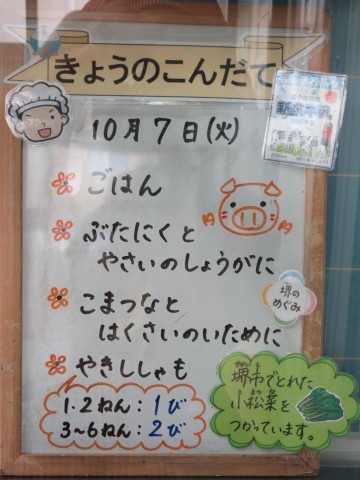 きょうのこんだて
10月7日(火)
ごはん
ぶたにくと
やさいのしょうがに
こまつなと
はくさいのいために
やきししゃも
1・2ねん:1び
3~6ねん:2び
堺の
めぐみ
堺市でとれた
小松菜を
つかっています。